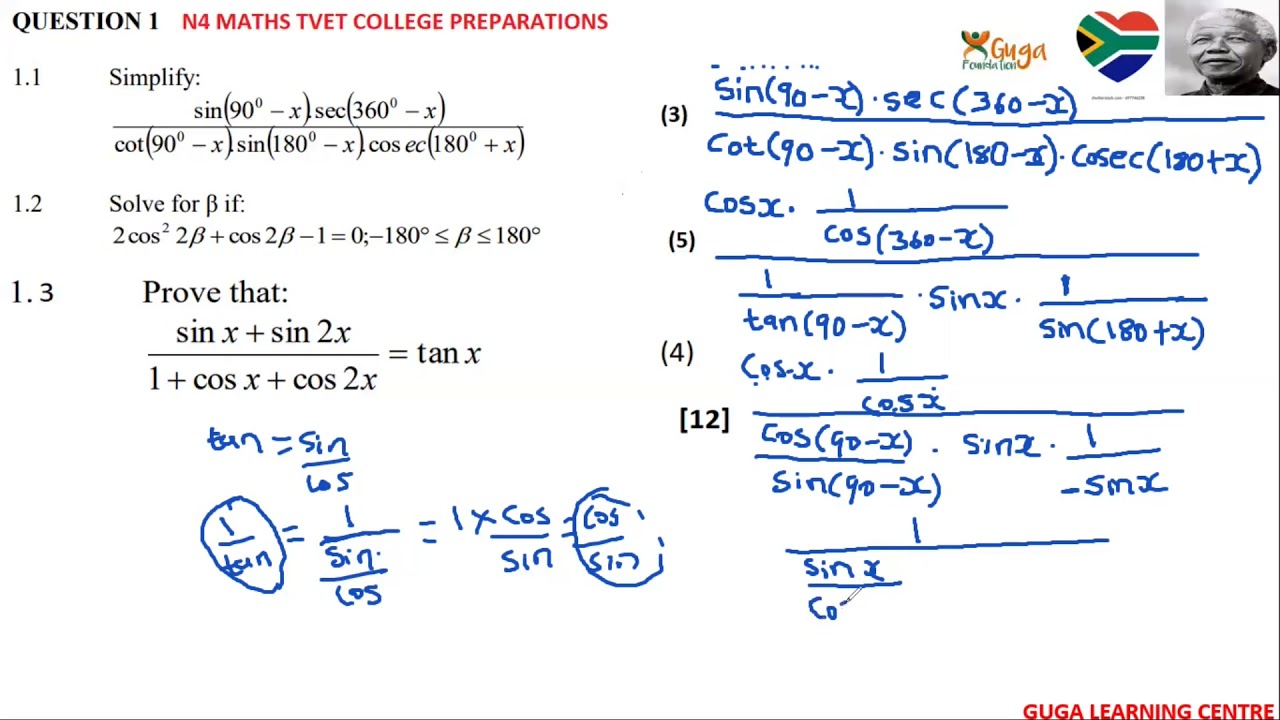 QUESTION 1 N4 MATHS TVET COLLEGE PREPARATIONS
Guga
Foundation
1.1 Simplify:
sin(90⁰ − x).sec(360⁰ − x)
cot(90⁰ − x).sin(180⁰ − x).cos ec(180⁰ + x)
(3)
1.2 Solve for β if:
2cos² 2β + cos 2β − 1 = 0; −180° ≤ β ≤ 180°
(5)
1.3 Prove that:
sin x + sin 2x
1 + cos x + cos 2x
= tan x
(4)
[12]
tan = sin
cos
1 = 1 = 1 × cos = cos
tan sin sin sin
cos
sin(90−x)·sec(360−x)
cot(90−x)·sin(180−x)·cosec(180+x)
cosx· 1
cos(360−x)
1 ·sinx· 1
tan(90−x) sin(180+x)
cosx · 1
cosx
cos(90−x) · sinx · 1
sin(90−x) −sinx
1
sin x
co
GUGA LEARNING CENTRE